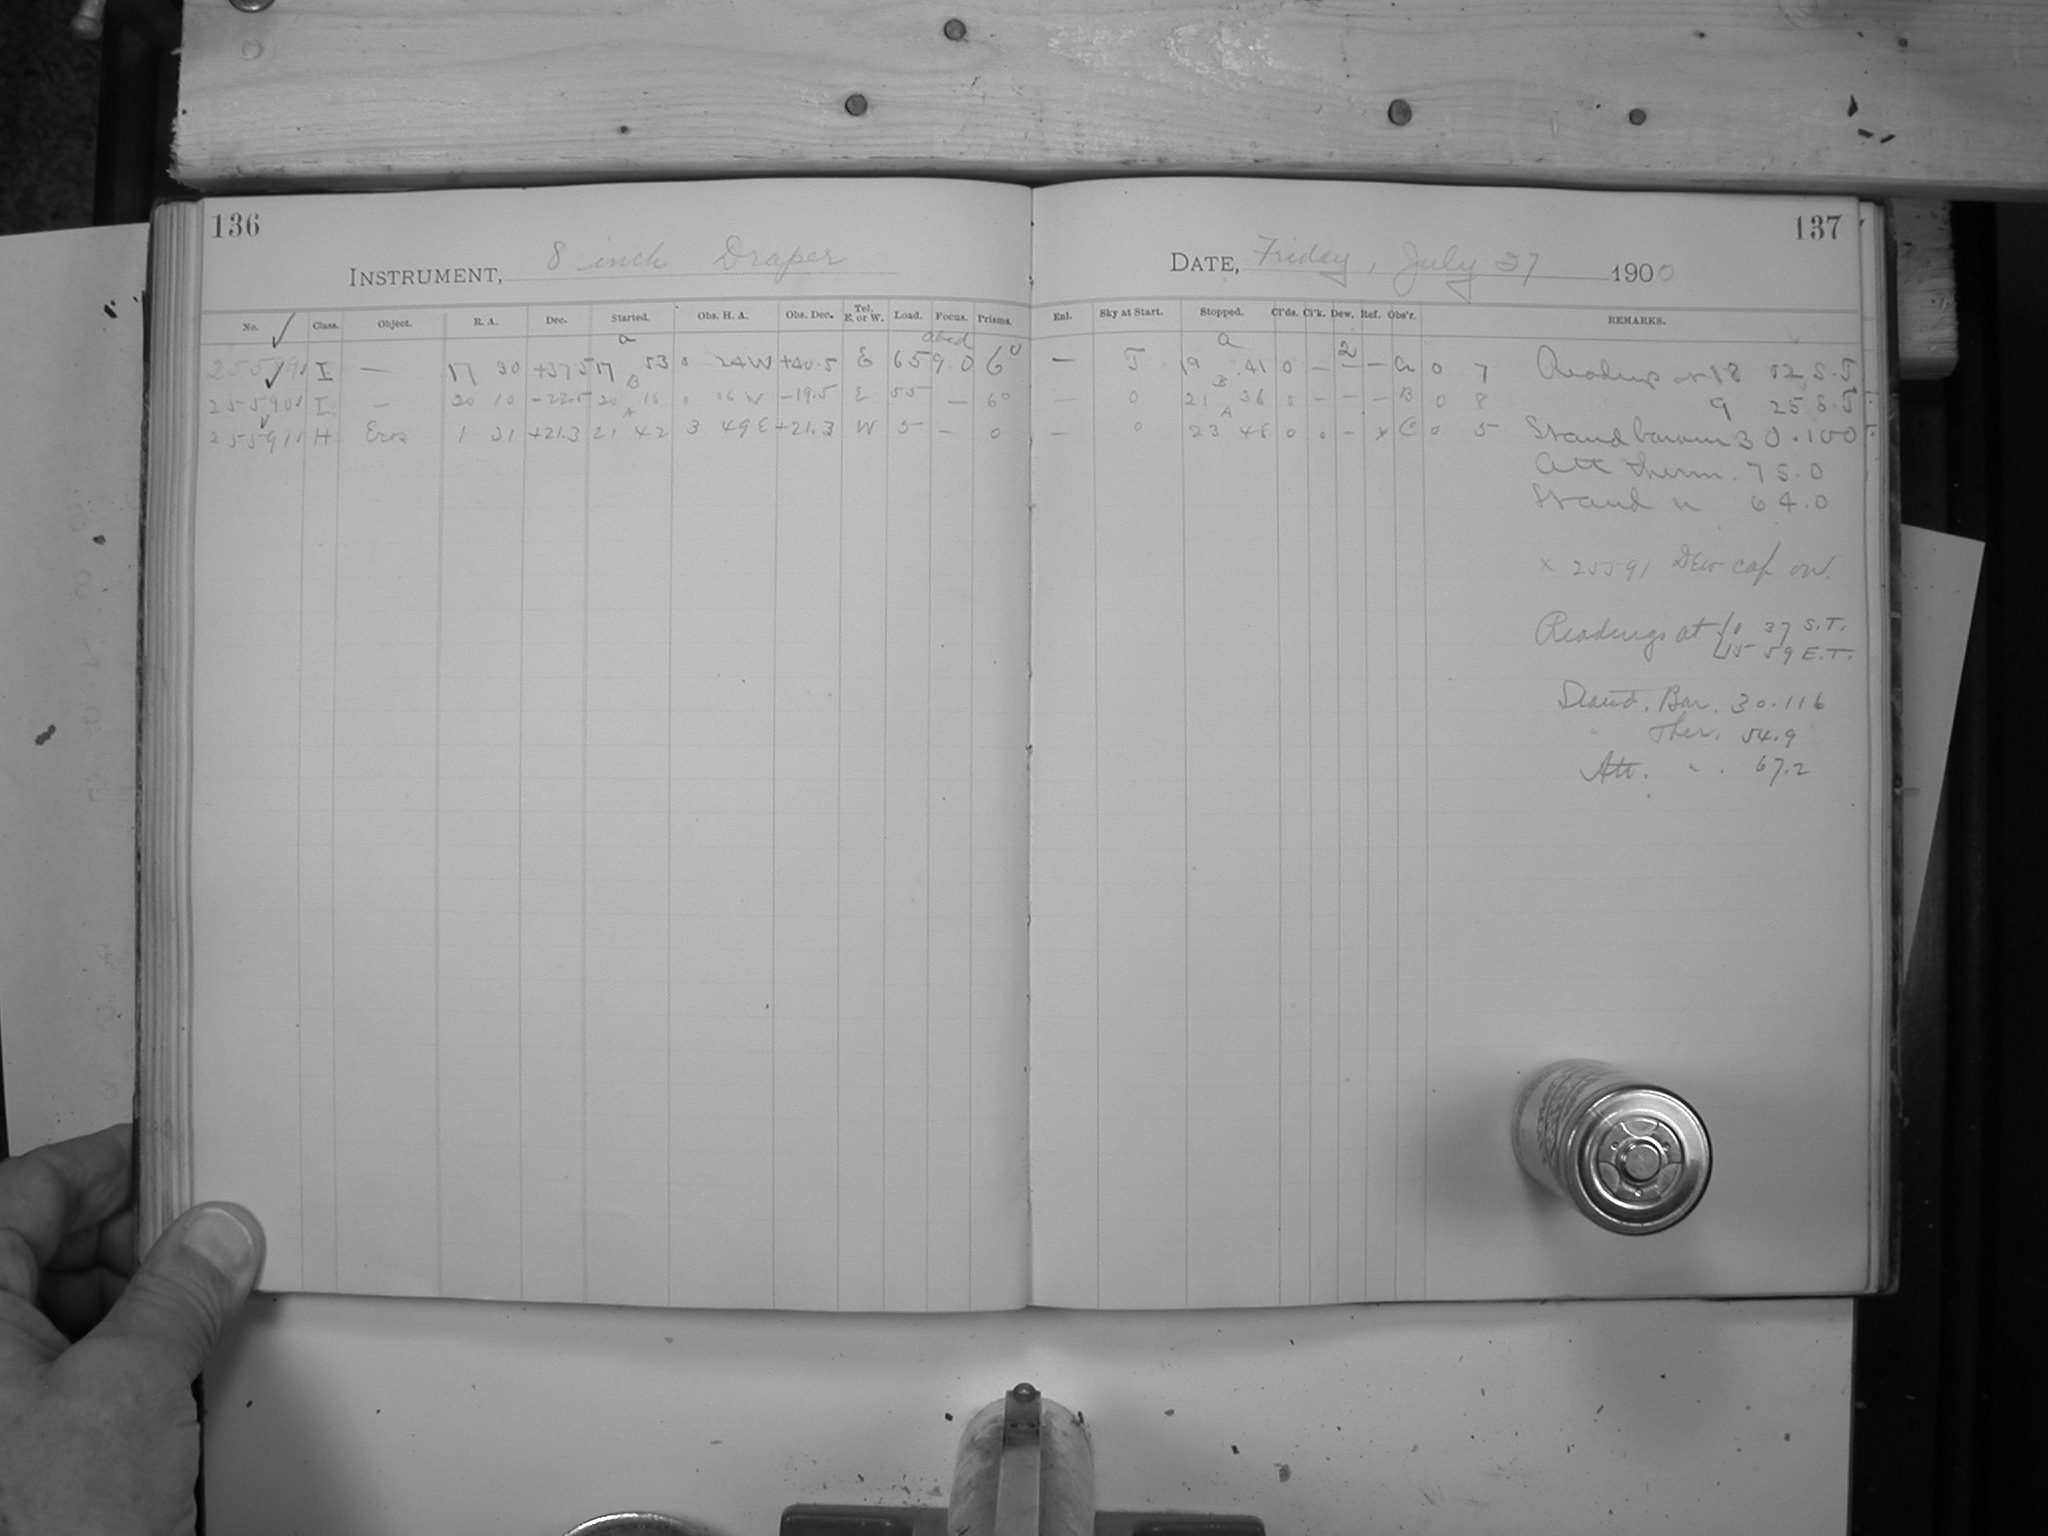 136
INSTRUMENT, 8 inch Draper
No. Class. Object. R. A. Dec. Started. Obs. H. A. Obs. Dec. Tel. E. or W. Load. Focus. Prisms.
I — 17 30 +37.5 a 17 53 0 24 W +40.5 E 65 9.0 6°
25590 I — 20 10 -22.5 B 20 16 0 06 W -19.5 E 55 — 6°
25591 H Eros 1 31 +21.3 A 21 42 3 49 E +21.3 W 5 — 0
137
DATE, Friday, July 27 1900
Enl. Sky at Start. Stopped. Cl'ds. Cl'k. Dew. Ref. Obs'r. REMARKS.
— T a 19 41 0 — 2 — 0 7 Readings at 18 02 S.T.
— 0 B 21 36 0 - - - B 0 8 9 25 S.T.
— 0 A 23 48 0 0 - x C 0 5 Stand barom 30.100
Att therm. 75.0
Stand " 64.0
x 25591 Dew cap on.
Readings at { 0 37 S.T.
15 59 E.T.
Stand. Bar. 30.116
" Ther. 54.9
Att. " . 67.2